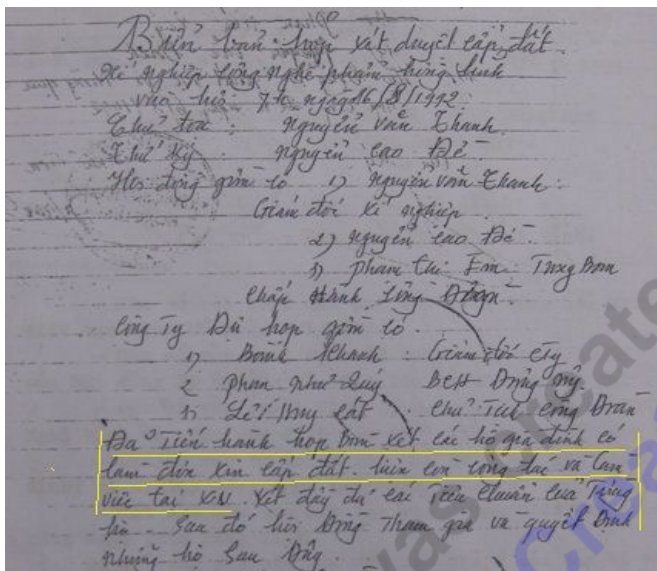 Biên bản họp xét duyệt cấp đất
Xí nghiệp công nghệ phẩm hồng lĩnh
vào hồi 7h ngày 16/8/1992
Chủ tọa : Nguyễn văn Thanh
Thư ký : Nguyễn cao Đề
Hội đồng gồm có 1) Nguyễn văn Thanh :
Giám đốc xí nghiệp
2) Nguyễn cao Đề
3) Phạm thị Em :
Chấp Hành Công Đoàn
Công Ty Dự họp gồm có
1) Khanh : Giám đốc cty
2 Phan như Quý BCH Đảng ủy
3) Lê Huy Cát : Chủ Tịch Công Đoàn
Đã Tiến hành họp xét các hộ gia đình có
làm đơn xin cấp đất. hiện còn công tác và làm
việc tại XN. Xét đầy đủ các Tiêu chuẩn của Từng
hộ. Sau đó hội Đồng Tham gia và quyết Định
những hộ Sau Đây.
was create
Crea